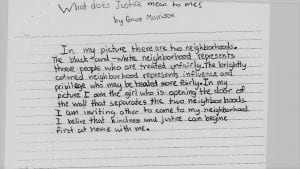 What does Justice mean to me?
by Grace Morrison
In my picture there are two neighborhoods.
The black-and-white neighborhood represents
those people who are treated unfairly. The brightly
colored neighborhood represents influence and
privilege who may be treated more fairly. In my
picture I am the girl who is opening the door of
the wall that separates the two neighborhoods.
I am inviting other to come to my neighborhood.
I belive that kindness and justice can begin
first at home with me.